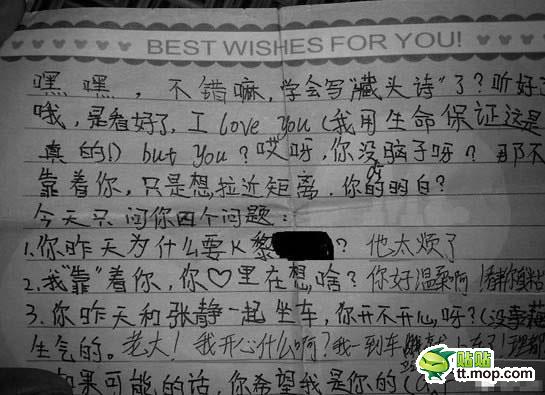 BEST WISHES FOR YOU!
嘿嘿,不错嘛,学会写"藏头诗"了?听好了
哦,是看好了,I love you(我用生命保证这是
真的!) but you?哎呀,你没脑子呀?那不
靠着你,只是想拉近距离,你的明白?
今天只问你四个问题:
1.你昨天为什么要K黎?他太烦了
2.我"靠"着你,你♡里在想啥?你好温柔啊!
3.你昨天和张静一起坐车,你开不开心呀?(没事
生气的。老大!我开心什么啊?我一到车
如果可能的话,你希望我是你的(
贴贴
tt.mop.com